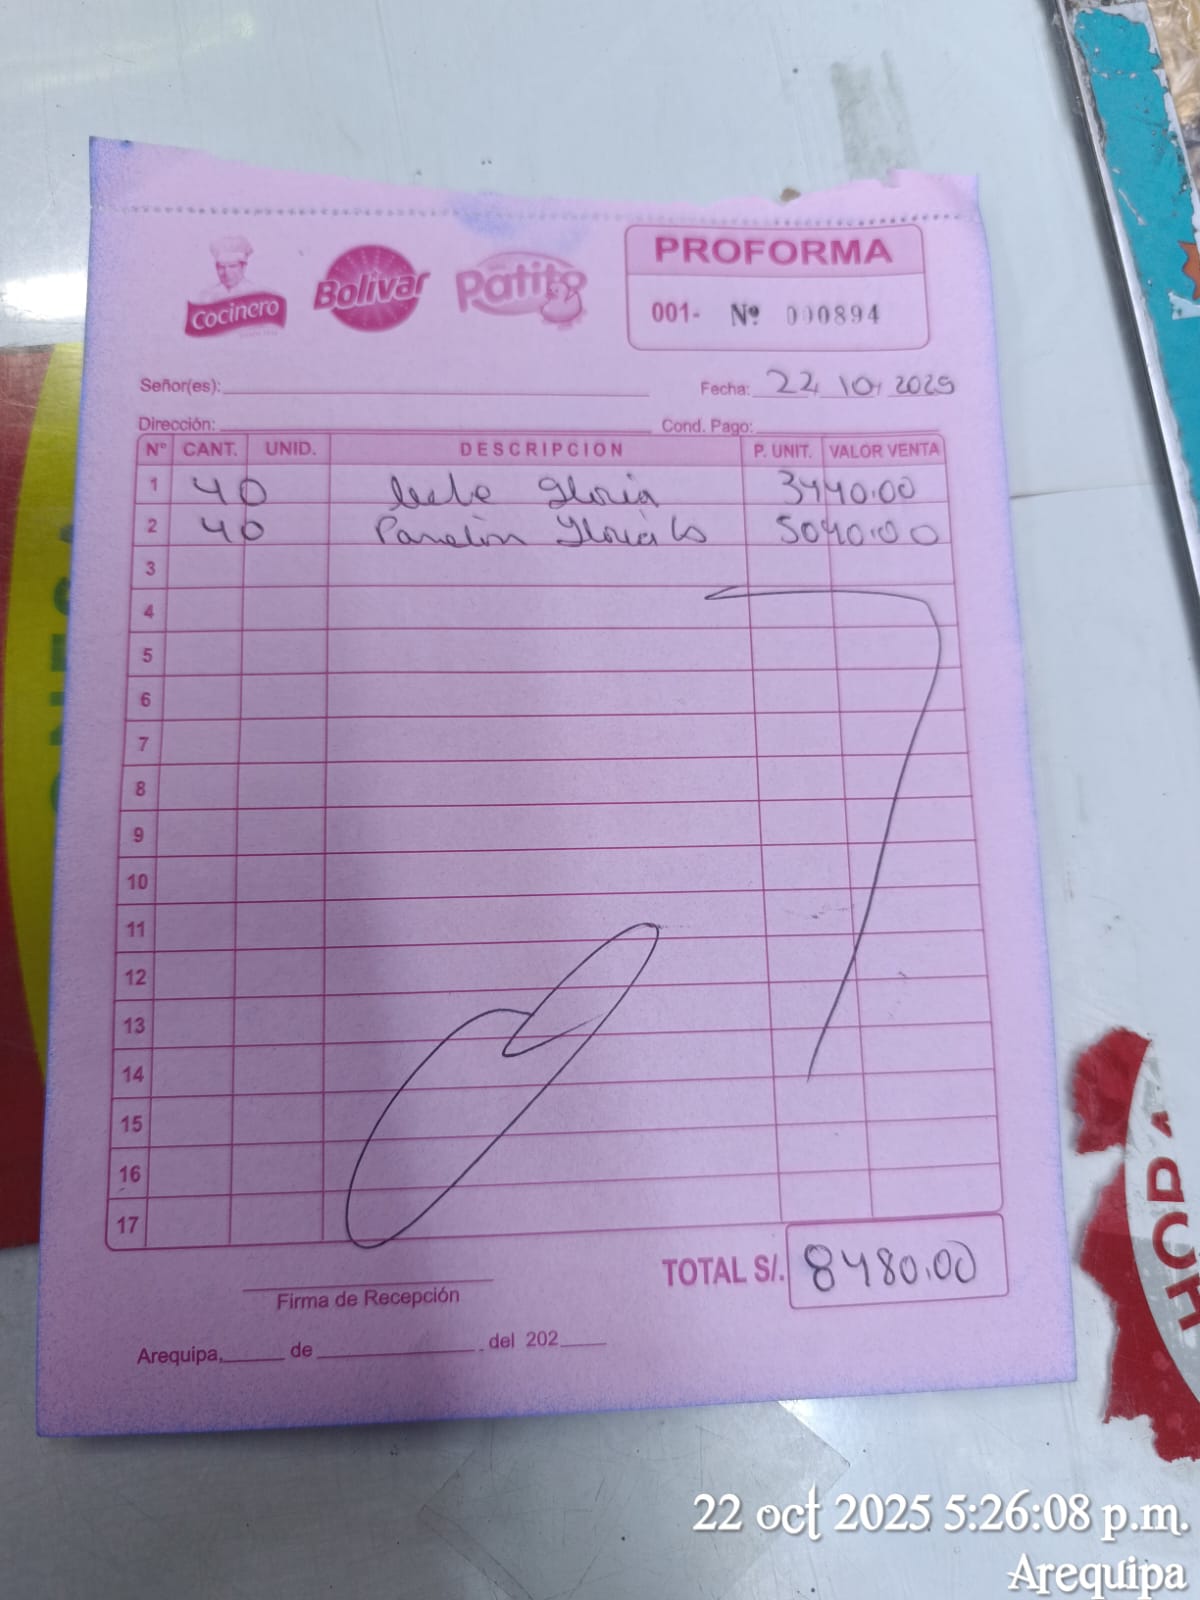 Cocinero
Bolivar
Patito
PROFORMA
001- Nº 000894
Señor(es):
Fecha: 22 10 2025
Dirección:
Cond. Pago:
Nº CANT. UNID. DESCRIPCION P. UNIT. VALOR VENTA
1 40 leche Gloria 3440.00
2 40 Panetón Gloria 5040.00
3
4
5
6
7
8
9
10
11
12
13
14
15
16
17
TOTAL S/. 8480.00
Firma de Recepción
Arequipa, de del 202
22 oct 2025 5:26:08 p.m.
Arequipa